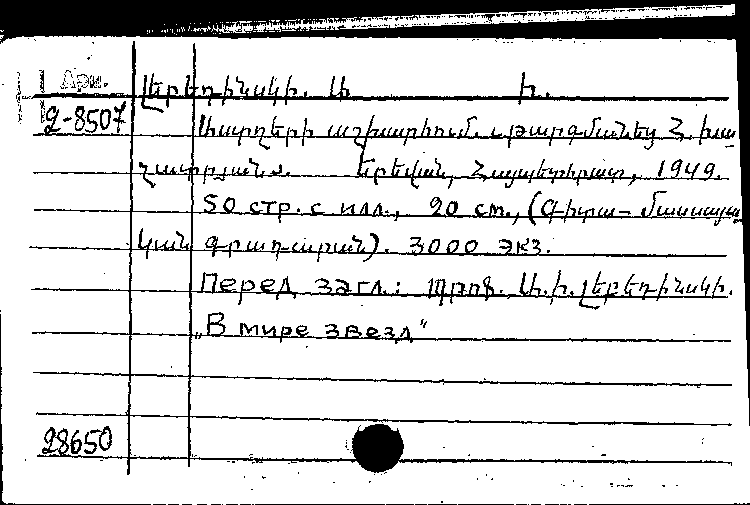 Арм.
Լեբեդինսկի. Ա. Ի.
2-8507
Աստղերի աշխարհում. թարգմանեց Հ. Խա
չատրյանը. Երեվան, Հայպետհրատ, 1949.
50 стр. с илл., 20 см., (Գիտա-մասսայա
կան գրադարան). 3000 экз.
Перед загл.: Պրոֆ. Ա. Ի. Լեբեդինսկի.
„В мире звезд"
28650